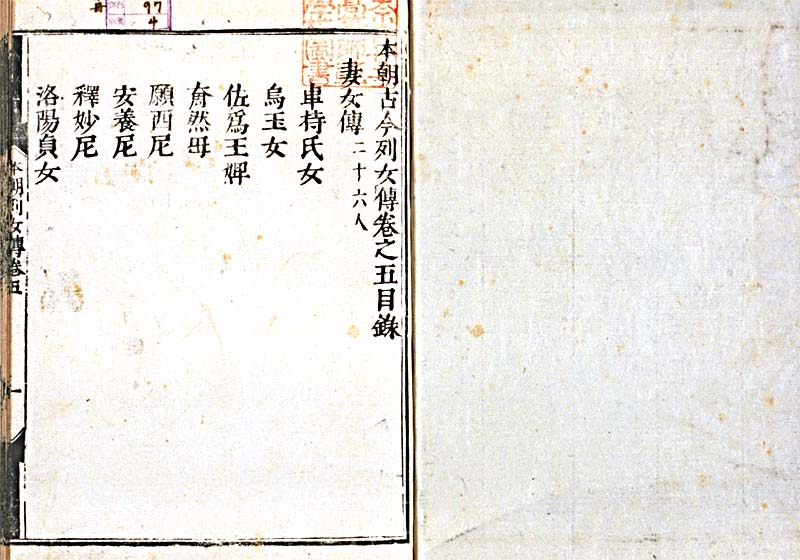 本朝古今列女傳卷之五目錄
妻女傳 二十六人
車持氏女
烏玉女
佐爲王婢
奝然母
願西尼
安養尼
釋妙尼
洛陽貞女
本朝列女傳卷五
一
冊
97
4